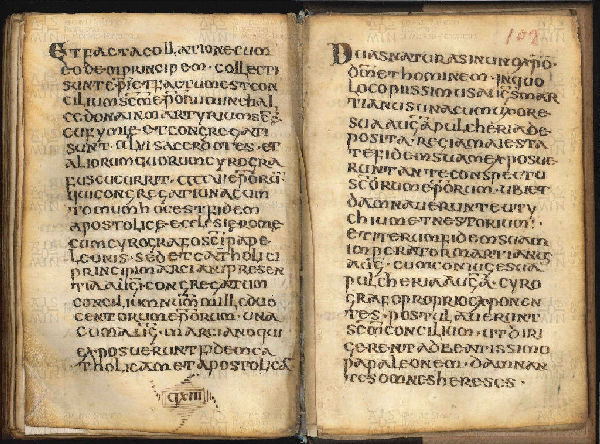 ET FACTA COLLATIONE CUM
EODEM PRINCIPEM · COLLECTI
SUNT EP̄I ET FACTUM EST CON
CILIUM SC̄M EP̄ORUM IN CHAL
CEDONA IN MARTYRIUM SC̄Ę
EUFYMIE · ET CONGREGATI
SUNT · CCLVI SACERDOTES · ET
ALIORUM QUORUM CYROGRA
FUS CUCURRIT · EP̄ORŪ
QUI CONGREGATI UNA CUM
TOMUM HOC EST FIDEM
APOSTOLICE ECCLESIE ROME
CUM CYROGRAFO SC̄I PAPE
LEONIS · SED ET CATHOLICI
PRINCIPIM MARCIANI PRESEN
TIA AUḠ · CONGREGATUM
CONCILIUM NUM̄ MILL DUC
CENTORUM EP̄ORUM · UNA
CUM AUḠ · MARCIANO QUI
EXPOSUERUNT FIDEM CA
THOLICAM ET APOSTOLICĀ
CXIII
107
DUAS NATURAS IN UNO XP̄O ·
DM̄ ET HOMINEM · IN QUO
LOCO PIISSIMUS AUḠS MAR
TIANUS UNA CUM UXORE
SUA AUḠA PULCHERIA DE
POSITA REGIA MAIESTA
TE FIDEM SUAM EXPOSUE
RUNT ANTE CONSPECTU
SC̄ORUM EP̄ORUM · UBI ET
DAMNAUERUNT EUTY
CHIUM ET NESTORIUM ·
ET ITERUM FIDEM SUAM
IMPERATOR MARTIANUS
AUḠ · CUM CONIUGE SUA
PULCHERIA AUḠA · CYRO
GRAFO PROPRIO EXPONEN
TES · POSTULAUERUNT
SC̄M CONCILIUM · UT DIRI
GERENT AD BEATISSIMO
PAPA LEONEM · DAMNAN
TES OMNES HERESES ·